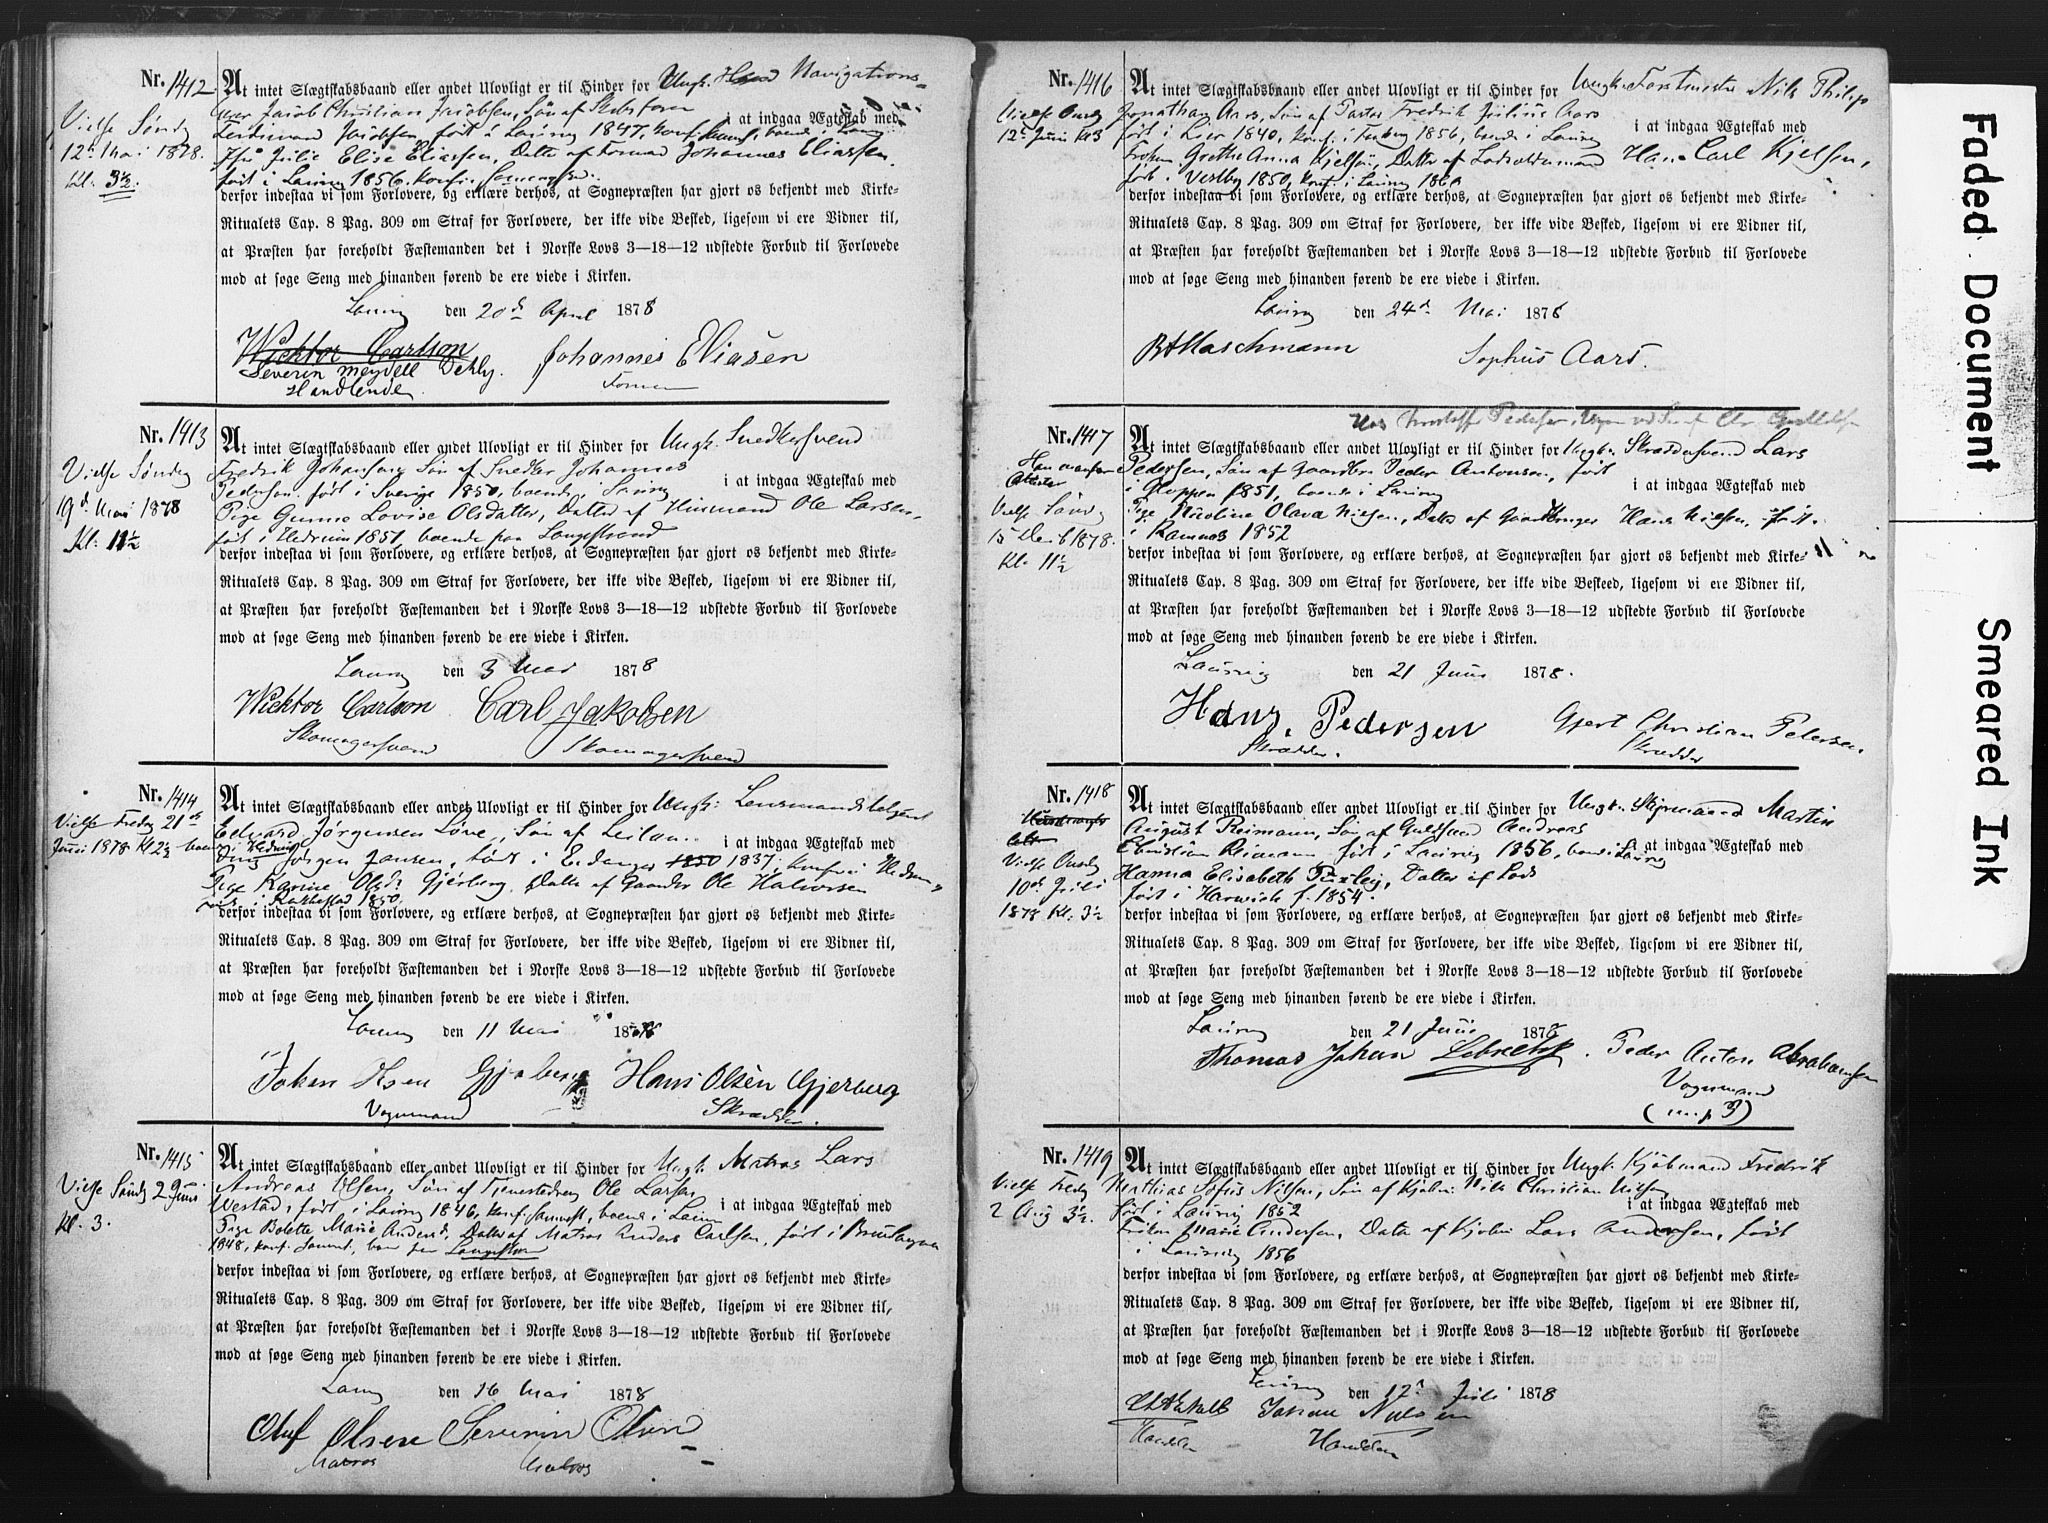 Nr. 1412
Vielse Søndag
12te Mai 1878.
Kl. 3½.
At intet Slægtskabsbaand eller andet Ulovligt er til Hinder for Ungk. Navigations-
Jacob Christian Jacobsen, Søn af
Ferdinand Jacobsen, født i Laurvig 1847, konf. boende i at indgaa Ægteskab med
Julie Elise Eliassen, Datter af Formand Johannes Eliassen,
født i Laurvig 1856, konf.
derfor indestaa vi som Forlovere, og erklære derhos, at Sognepræsten har gjort os bekjendt med Kirke-
Ritualets Cap. 8 Pag. 309 om Straf for Forlovere, der ikke vide Besked, ligesom vi ere Vidner til,
at Præsten har foreholdt Fæstemanden det i Norske Lovs 3—18—12 udstedte Forbud til Forlovede
mod at søge Seng med hinanden førend de ere viede i Kirken.
Laurvig den 20de April 1878
Wicktor Carlson Johannes Eliasen
Severin Meydell Dehly. Formand
Handlende
Nr. 1413
Vielse Søndag
19de Mai 1878
Kl. 11½
At intet Slægtskabsbaand eller andet Ulovligt er til Hinder for Ungk. Snedkersvend
Fredrik Johansson, Søn af Snedker Johannes
Pederson født i Sverige 1850, boende i Laurvig at indgaa Ægteskab med
Pige Lovise Olsdatter, Datter af Ole Larsen
født i Hedrum 1851, boende paa Langestrand
derfor indestaa vi som Forlovere, og erklære derhos, at Sognepræsten har gjort os bekjendt med Kirke-
Ritualets Cap. 8 Pag. 309 om Straf for Forlovere, der ikke vide Besked, ligesom vi ere Vidner til,
at Præsten har foreholdt Fæstemanden det i Norske Lovs 3—18—12 udstedte Forbud til Forlovede
mod at søge Seng med hinanden førend de ere viede i Kirken.
Laurvig den 3 Mai 1878
Wicktor Carlson Carl Jakobsen
Skomagersvend Skomagersvend
Nr. 1414
Vielse Fredag 21de
Juni 1878 Kl 2½
At intet Slægtskabsbaand eller andet Ulovligt er til Hinder for Ungk. Lensmandsbetjent
Edvard Jørgensen Løve, Søn af
Jørgen Jansen, født i Eidanger 1850 1837, konf. i Hedrum, at indgaa Ægteskab med
Pige Karine Olsdr Gjerberg, Datter af Gaardbr Ole Halvorsen
født i 1850
derfor indestaa vi som Forlovere, og erklære derhos, at Sognepræsten har gjort os bekjendt med Kirke-
Ritualets Cap. 8 Pag. 309 om Straf for Forlovere, der ikke vide Besked, ligesom vi ere Vidner til,
at Præsten har foreholdt Fæstemanden det i Norske Lovs 3—18—12 udstedte Forbud til Forlovede
mod at søge Seng med hinanden førend de ere viede i Kirken.
Laurvig den 11 Mai 1878
Johan Olsen Gjerberg Hans Olsen Gjerberg
Vognmand Skrædder.
Nr. 1415
Vielse Søndg 2 Juni
Kl. 3.
At intet Slægtskabsbaand eller andet Ulovligt er til Hinder for Ungk. Matros Lars
Andreas Olsen, Søn af Tjenestedreng Ole Larsen
Westad, født i Laurvig 1846, konf. sammest., boende i Laurvig at indgaa Ægteskab med
Pige Bolette Marie Andersd, Datter af Matros Anders Carlsen, født i Brunlagnæs
1848, konf. sammest. boen. paa Langestrand
derfor indestaa vi som Forlovere, og erklære derhos, at Sognepræsten har gjort os bekjendt med Kirke-
Ritualets Cap. 8 Pag. 309 om Straf for Forlovere, der ikke vide Besked, ligesom vi ere Vidner til,
at Præsten har foreholdt Fæstemanden det i Norske Lovs 3—18—12 udstedte Forbud til Forlovede
mod at søge Seng med hinanden førend de ere viede i Kirken.
Laurvig den 16 Mai 1878
Oluf Olsen Severin Olsen
Matros Matros
Nr. 1416
Vielse Onsdg
12te Juni Kl 3
At intet Slægtskabsbaand eller andet Ulovligt er til Hinder for Ungk. Forstmester Nils Philip
Jonathan Aars, Søn af Pastor Fredrik Julius Aars
født i Lier 1840, konf. i 1856, boende i Laurvig at indgaa Ægteskab med
Frøken Grethe Anna Kjelsen, Datter af Lodsoldermand Hans Carl Kjelsen,
født i Vestby 1850, konf. i Laurvig
derfor indestaa vi som Forlovere, og erklære derhos, at Sognepræsten har gjort os bekjendt med Kirke-
Ritualets Cap. 8 Pag. 309 om Straf for Forlovere, der ikke vide Besked, ligesom vi ere Vidner til,
at Præsten har foreholdt Fæstemanden det i Norske Lovs 3—18—12 udstedte Forbud til Forlovede
mod at søge Seng med hinanden førend de ere viede i Kirken.
Laurvig den 24de Mai 1878
Maschmann Sophus Aars.
Nr. 1417
Vielse Søndg
15 Decb 1878.
Kl. 11½
At intet Slægtskabsbaand eller andet Ulovligt er til Hinder for Ungk. Skræddersvend Lars
Pedersen, Søn af Gaardbr Peder Antonsen, født
i Gloppen 1851, boende i Laurvig at indgaa Ægteskab med
Pige Nicoline Olava Nielsen, Datter af Hans Nielsen, født
i Ramnæs 1852
derfor indestaa vi som Forlovere, og erklære derhos, at Sognepræsten har gjort os bekjendt med Kirke-
Ritualets Cap. 8 Pag. 309 om Straf for Forlovere, der ikke vide Beskeed, ligesom vi ere Vidner til,
at Præsten har foreholdt Fæstemanden det i Norske Lovs 3—18—12 udstedte Forbud til Forlovede
mod at søge Seng med hinanden førend de ere viede i Kirken.
Laurvig den 21 Juni 1878.
Hans Pedersen Gjert Christian Petersen.
Skrædder. Skrædder
Nr. 1418
Vielse Onsdg
10de Juli
1878 Kl. 3½
At intet Slægtskabsbaand eller andet Ulovligt er til Hinder for Ungk. Styrmand Martin
August Reimann, Søn af Guldsmed Andreas
Christian Reimann, født i Laurvig 1856, boende i Laurvig at indgaa Ægteskab med
Hanna Elisabeth Datter af Lods
født i Harwich f. 1854.
derfor indestaa vi som Forlovere, og erklære derhos, at Sognepræsten har gjort os bekjendt med Kirke-
Ritualets Cap. 8 Pag. 309 om Straf for Forlovere, der ikke vide Besked, ligesom vi ere Vidner til,
at Præsten har foreholdt Fæstemanden det i Norske Lovs 3—18—12 udstedte Forbud til Forlovede
mod at søge Seng med hinanden førend de ere viede i Kirken.
Laurvig den 21 Juni 1878
Thomas Johan Peder Anton Abrahamsen
Vognmand
(m. p. P)
Nr. 1419
Vielse Fredg
2 Aug 3½.
At intet Slægtskabsbaand eller andet Ulovligt er til Hinder for Ungk. Kjøbmand Fredrik
Mathias Sofus Nilsen, Søn af Kjøbm. Nils Christian Nilsen
født i Laurvig 1852 at indgaa Ægteskab med
Frøken Marie Andersen, Datter af Kjøbm Lars Andersen, født
i Laurvig 1856
derfor indestaa vi som Forlovere, og erklære derhos, at Sognepræsten har gjort os bekjendt med Kirke-
Ritualets Cap. 8 Pag. 309 om Straf for Forlovere, der ikke vide Besked, ligesom vi ere Vidner til,
at Præsten har foreholdt Fæstemanden det i Norske Lovs 3—18—12 udstedte Forbud til Forlovede
mod at søge Seng med hinanden førend de ere viede i Kirken.
Laurvig den 17de Juli 1878
Johan Nielsen
Handlen Handlen
Faded Document
Smeared Ink